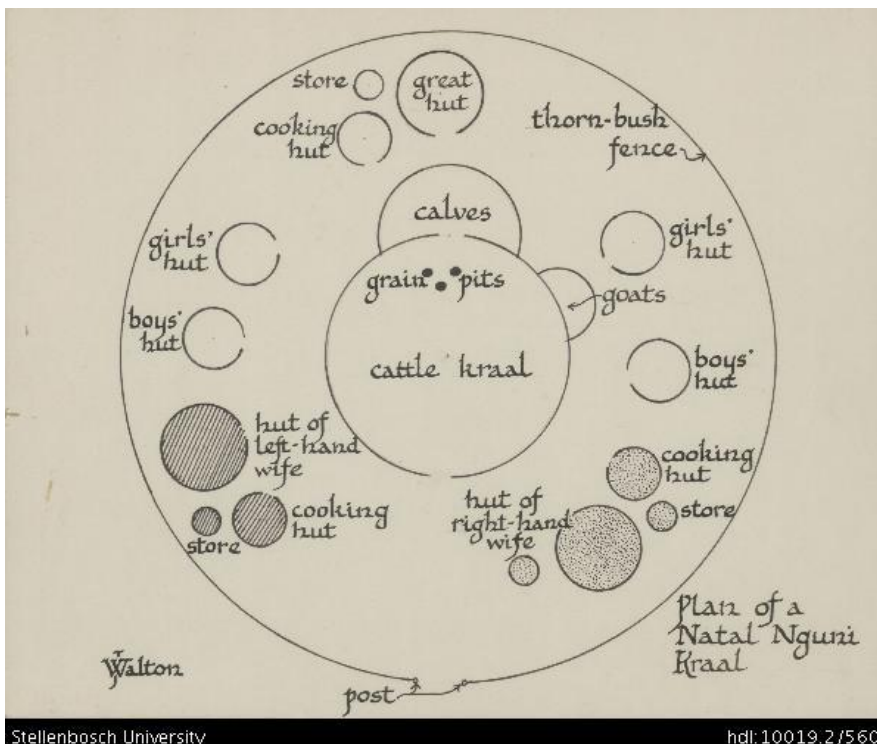 store
great
hut
cooking
hut
thorn-bush
fence
calves
girls'
hut
girls'
hut
grain pits
goats
boys'
hut
cattle kraal
boys'
hut
hut of
left-hand
wife
cooking
hut
cooking
hut
store
hut of
right-hand
wife
store
Plan of a
Natal Nguni
Kraal
JWalton
post
Stellenbosch University
hdl:10019.2/560